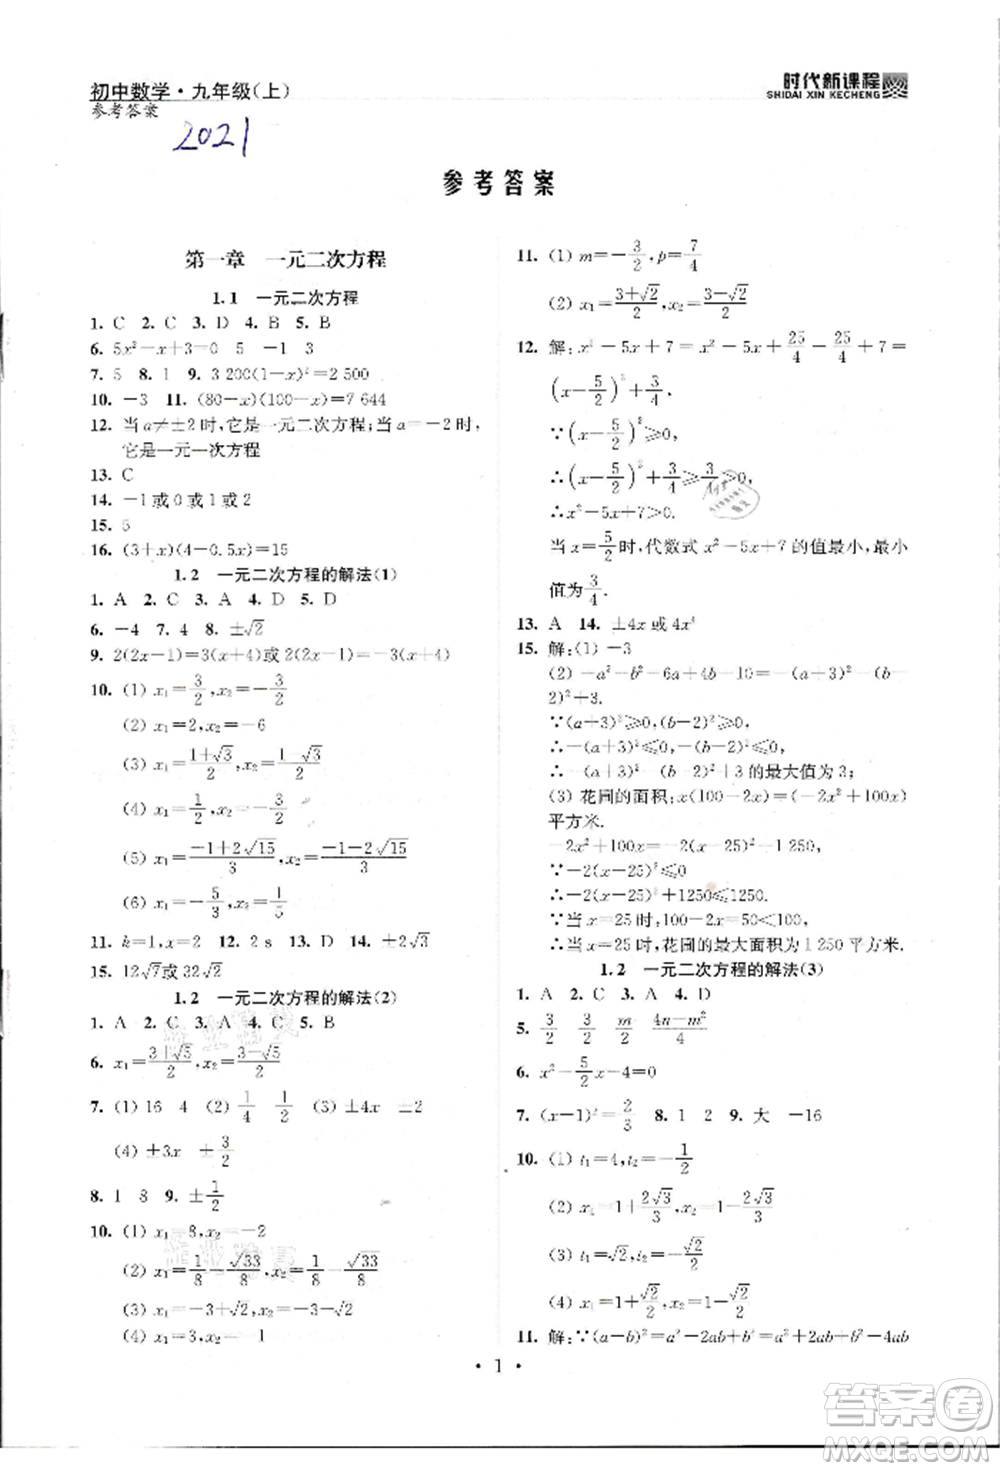 初中数学·九年级(上)
参考答案
2021
时代新课程
SHIDAI XIN KECHENG
参考答案
第一章 一元二次方程
1.1 一元二次方程
1. C 2. C 3. D 4. B 5. B
6. 5x²-x+3=0 5 -1 3
7. 5 8. 1 9. 3 200(1-x)²=2 500
10. -3 11. (80-x)(100-x)=7 644
12. 当a≠±2时,它是一元二次方程;当a=-2时,
它是一元一次方程
13. C
14. -1或0或1或2
15. 5
16. (3+x)(4-0.5x)=15
1.2 一元二次方程的解法(1)
1. A 2. C 3. A 4. D 5. D
6. -4 7. 4 8. ±√2
9. 2(2x-1)=3(x+4)或2(2x-1)=-3(x+4)
10. (1) x₁=3/2,x₂=-3/2
(2) x₁=2,x₂=-6
(3) x₁=(1+√3)/2,x₂=(1-√3)/2
(4) x₁=1/2,x₂=-3/2
(5) x₁=(-1+2√15)/3,x₂=(-1-2√15)/3
(6) x₁=-5/3,x₂=-1/5
11. k=1,x=2 12. 2 s 13. D 14. -2√3
15. 12√7或24√3
1.2 一元二次方程的解法(2)
1. A 2. C 3. A 4. C 5. B
6. x₁=(3+√5)/2,x₂=(3-√5)/2
7. (1) 16 4 (2) 1/4 1/2 (3) ±4x ±2
(4) ±3x ±3/2
8. 1 8 9. ±1/2
10. (1) x₁=8,x₂=-2
(2) x₁=1/8+√33/8,x₂=1/8-√33/8
(3) x₁=-3+√2,x₂=-3-√2
(4) x₁= x₂= 1
11. (1) m=-3/2,p=7/4
(2) x₁=(3+√2)/2,x₂=(3-√2)/2
12. 解:x²-5x+7=x²-5x+25/4-25/4+7=
(x-5/2)²+3/4
∵(x-5/2)²≥0,
∴(x-5/2)²+3/4≥3/4>0,
∴x²-5x+7>0.
当x=5/2时,代数式x²-5x+7的值最小,最小
值为3/4.
13. A 14. ±4x或4x⁴
15. 解:(1) -3
(2) -a²-b²-6a+4b-10=-(a+3)²-(b-
2)²+3.
∵(a+3)²≥0,(b-2)²≥0,
∴-(a+3)²≤0,-(b-2)²≤0,
∴-(a+3)²-(b-2)²+3的最大值为3;
(3) 花园的面积:x(100-2x)=(-2x²+100x)
平方米.
-2x²+100x=-2(x-25)²+1 250,
∵-2(x-25)²≤0
∴-2(x-25)²+1250≤1250.
∵当x=25时,100-2x=50<100,
∴当x=25时,花园的最大面积为1 250平方米.
1.2 一元二次方程的解法(3)
1. A 2. C 3. A 4. D
5. 3/2 3/2 m/2 (4n-m²)/4
6. x²-5/2x-4=0
7. (x-1)²=2/3 8. 1 2 9. 大 -16
10. (1) t₁=4,t₂=-1/2
(2) x₁=1+2√3/3,x₂=1-2√3/3
(3) t₁=√2,t₂=√2/2
(4) x₁=1+√2/2,x₂=-1-√2/2
11. 解:∵(a-b)²=a²-2ab+b²=a²+2ab+b²-4ab
·1·
答案卷
MXQE.COM